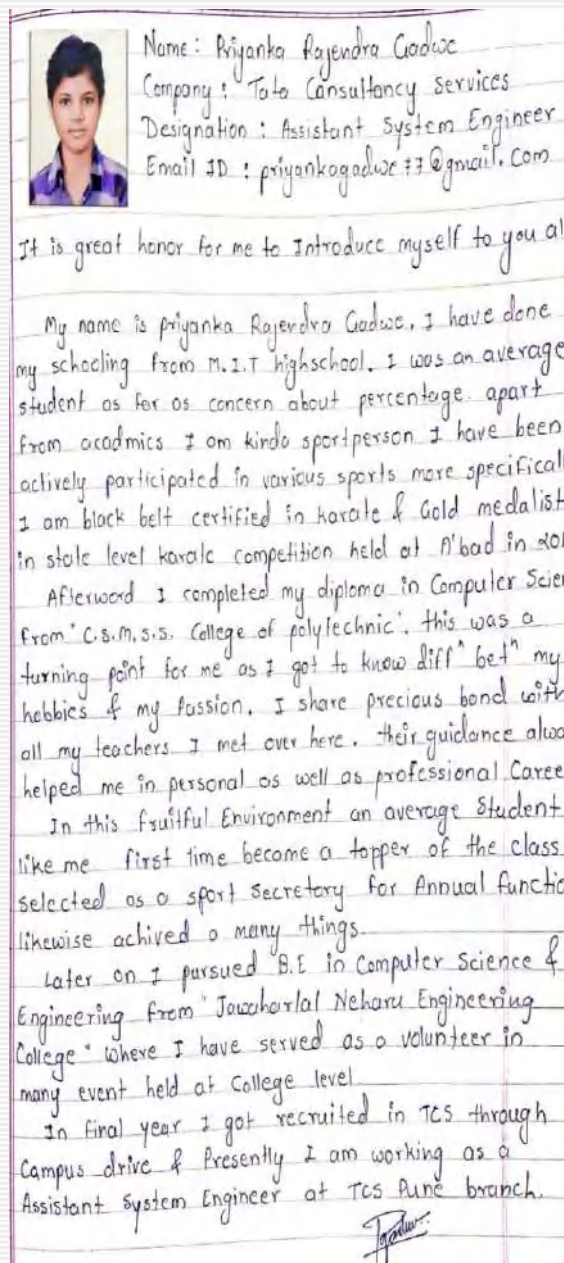 Name : Priyanka Rajendra Gadwe
Company : Tata Consultancy Services
Designation : Assistant System Engineer
Email ID : priyankagadwe77@gmail.com
It is great honor for me to Introduce myself to you al
My name is priyanka Rajendra Gadwe. I have done
my schooling from M.I.T highschool. I was an average
student as for as concern about percentage. apart
from acadmics I am kinda sportperson I have been
actively participated in various sports more specificall
I am black belt certified in karate & Gold medalist
in state level karate competition held at A'bad in 201
Afterword I completed my diploma in Computer Scien
from "C.S.M.S.S. College of polytechnic". this was a
turning point for me as I got to know diffⁿ betⁿ my
hobbies & my Passion. I share precious bond with
all my teachers I met over here. their guidance alwa
helped me in personal as well as professional Caree
In this fruitful Environment an average Student
like me first time become a topper of the class
selected as a sport secretary for Annual functio
likewise achived a many things.
Later on I pursued B.E in Computer Science &
Engineering from "Jawaharlal Neharu Engineering
College" where I have served as a volunteer in
many event held at College level
In final year I got recruited in TCS through
Campus drive & Presently I am working as a
Assistant System Engineer at TCS Pune branch.